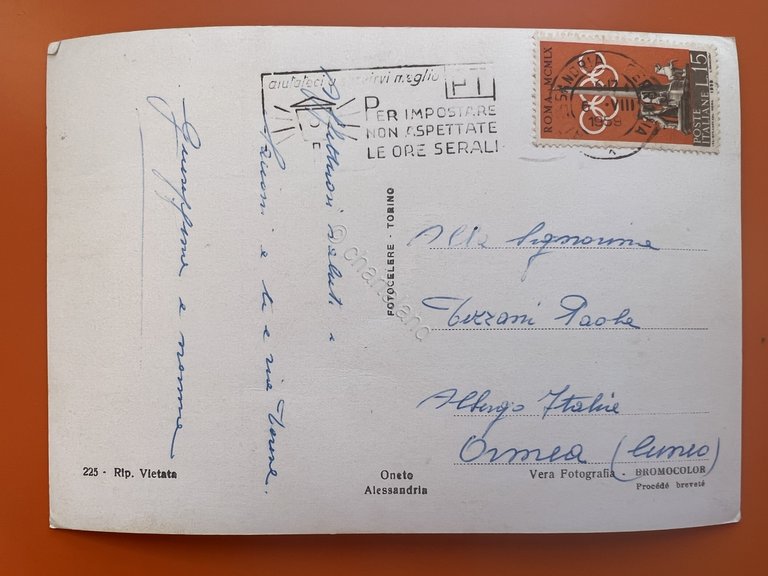 Affettuosi saluti e
bacioni a te e zia
Giuseppina e nonna
aiutateci a servirvi meglio
PT
PER IMPOSTARE
NON ASPETTATE
LE ORE SERALI
ROMA MCMLX
POSTE ITALIANE
L. 15
ALESSANDRIA
1959
FOTOCELERE - TORINO
Alla Signorina
Tizzani Paola
Albergo Italia
Ormea (Cuneo)
225 - Rip. Vietata
Oneto
Alessandria
Vera Fotografia - BROMOCOLOR
Procédé breveté
© charlieand